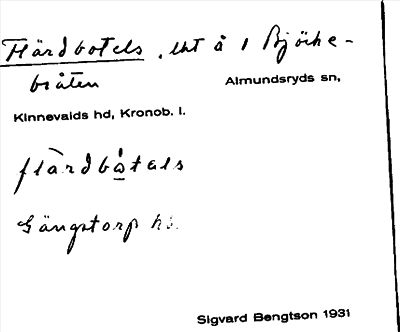 Flärdbotels, lht å 1 Björke-
bråten Almundsryds sn,
Kinnevalds hd, Kronob. l.
flärdbåtals
Gängstorp
Sigvard Bengtson 1931